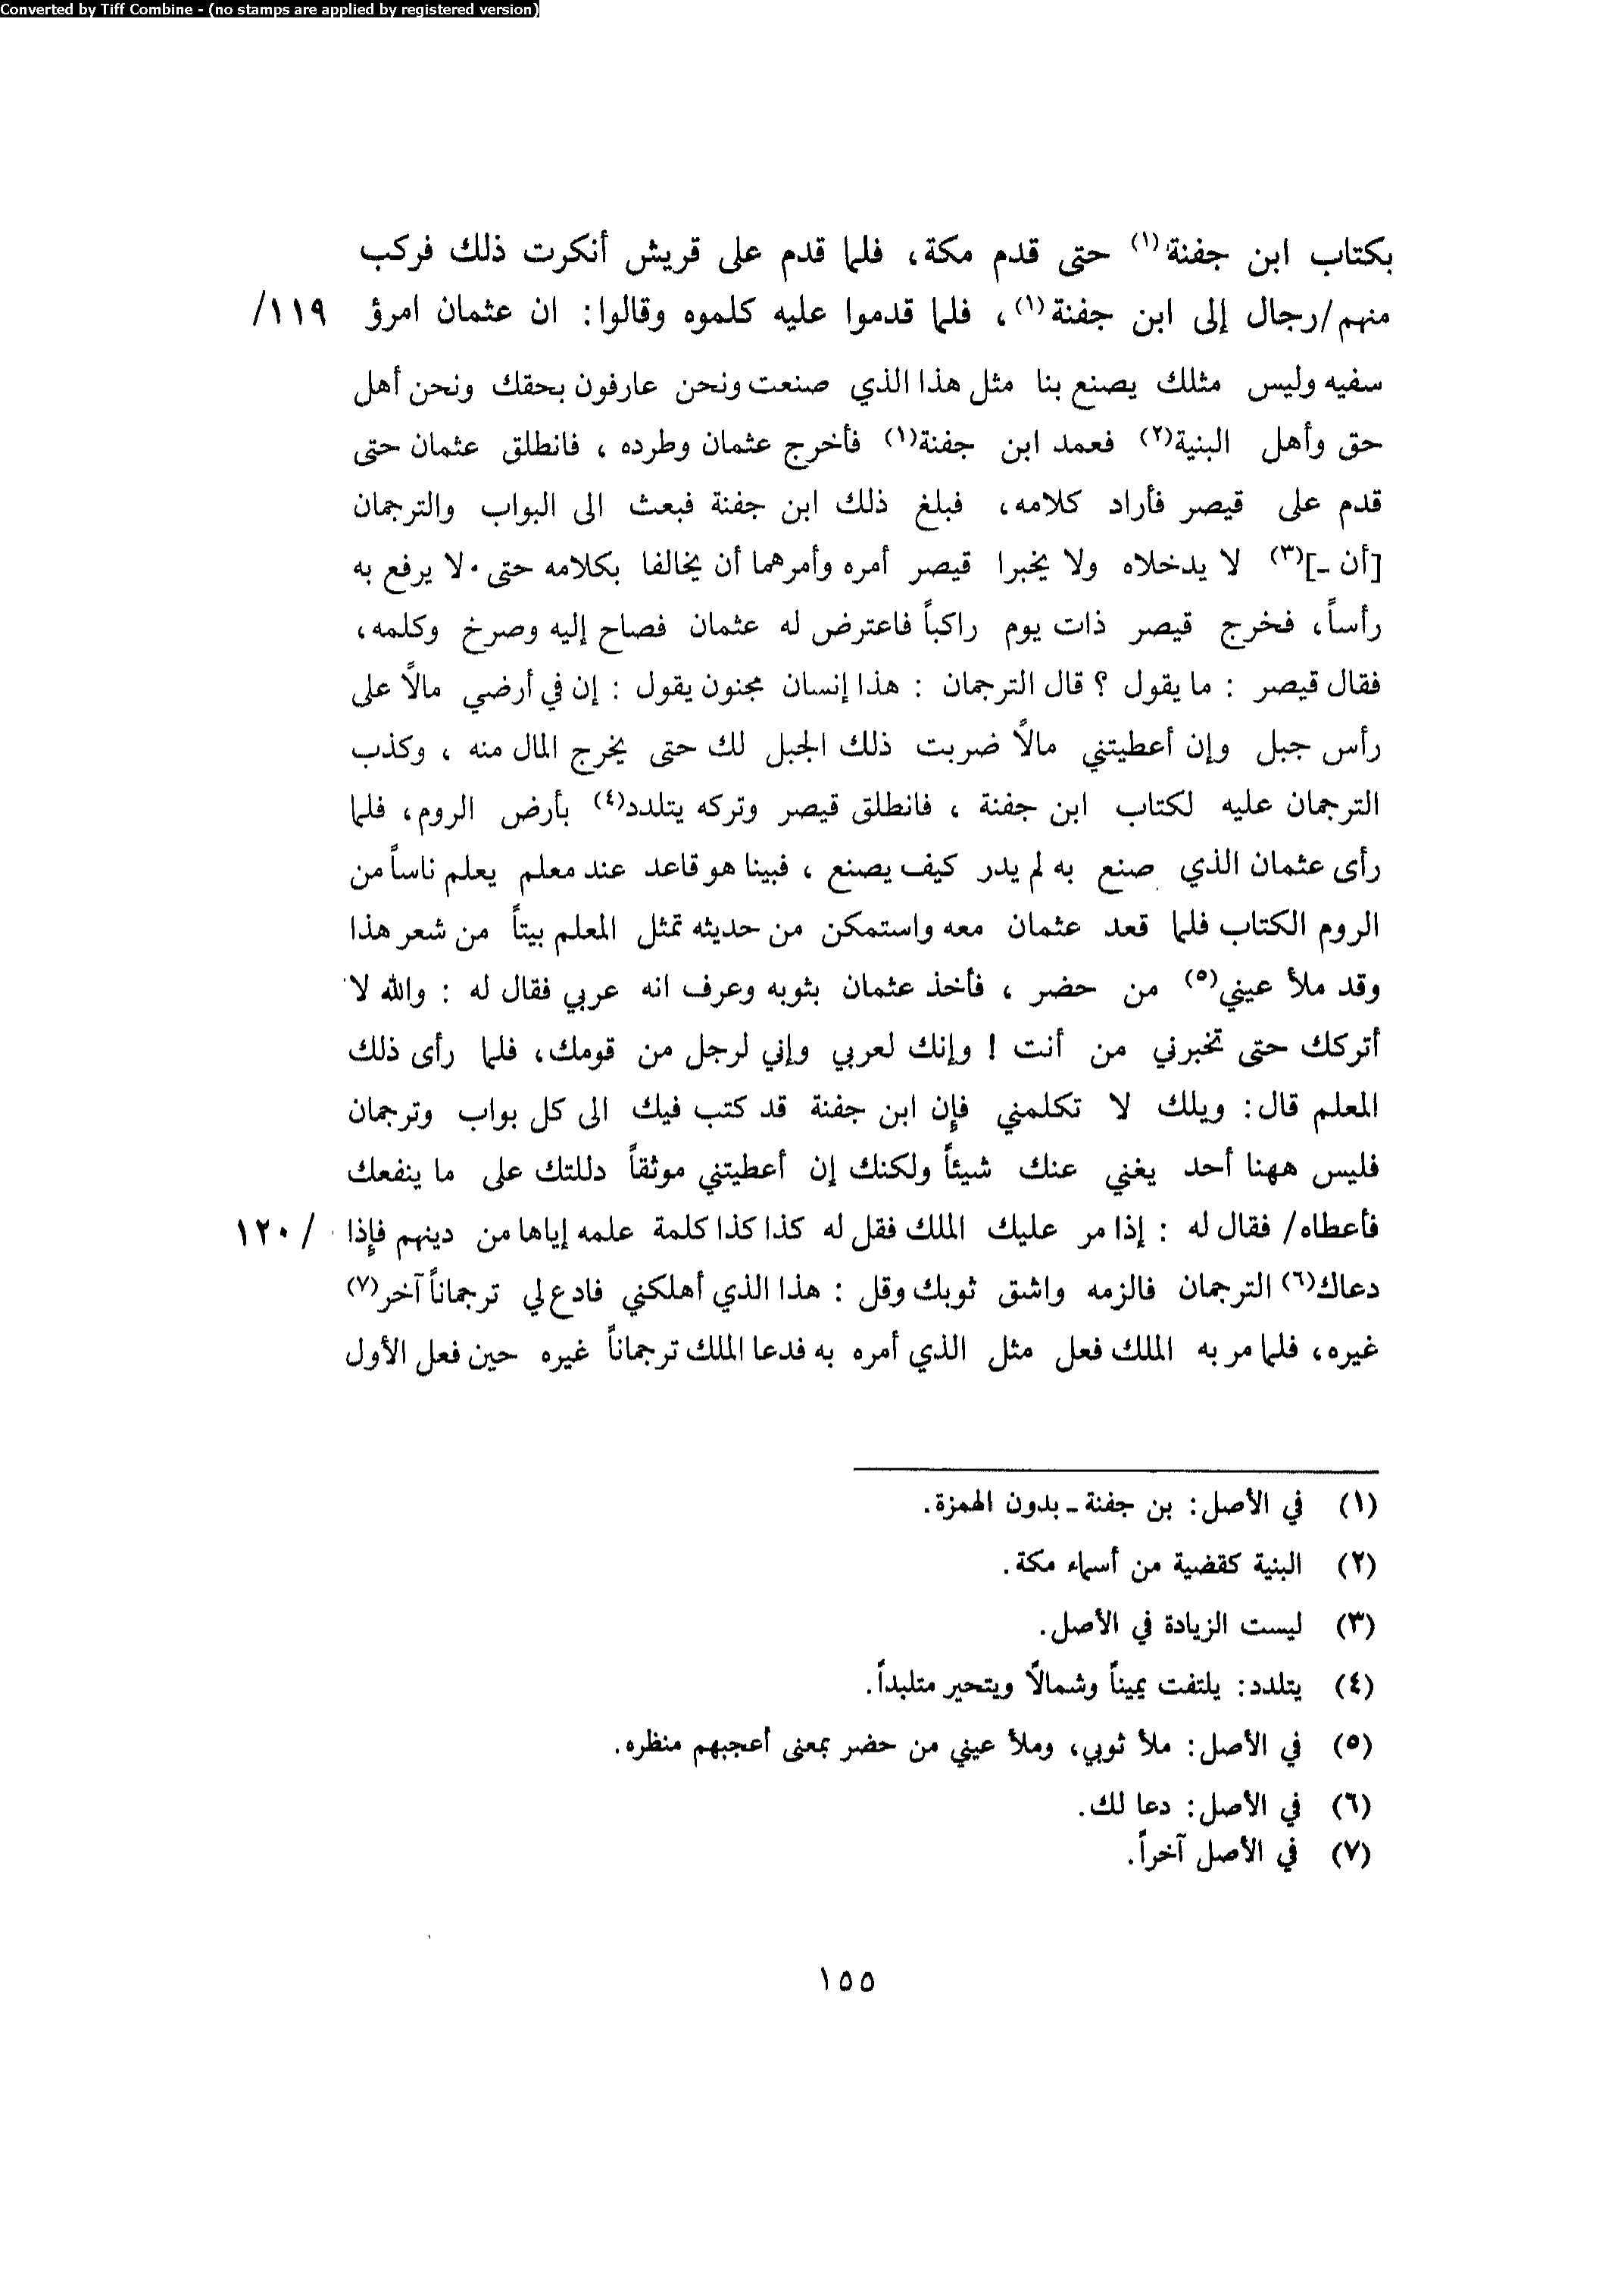 Converted by Tiff Combine - (no stamps are applied by registered version)
بكتاب ابن جفنة(١) حتى قدم مكة، فلما قدم على قريش أنكرت ذلك فركب
منهم/رجال إلى ابن جفنة(١)، فلما قدموا عليه كلموه وقالوا: ان عثمان امرؤ /١١٩
سفيه وليس مثلك يصنع بنا مثل هذا الذي صنعت ونحن عارفون بحقك ونحن أهل
حق وأهل البنية(٢) فعمد ابن جفنة(١) فأخرج عثمان وطرده ، فانطلق عثمان حتى
قدم على قيصر فأراد كلامه، فبلغ ذلك ابن جفنة فبعث الى البواب والترجمان
[أن ـ](٣) لا يدخلاه ولا يخبرا قيصر أمره وأمرهما أن يخالفا بكلامه حتى لا يرفع به
رأساً، فخرج قيصر ذات يوم راكباً فاعترض له عثمان فصاح إليه وصرخ وكلمه،
فقال قيصر : ما يقول ؟ قال الترجمان : هذا إنسان مجنون يقول : إن في أرضي مالاً على
رأس جبل وإن أعطيتني مالاً ضربت ذلك الجبل لك حتى يخرج المال منه ، وكذب
الترجمان عليه لكتاب ابن جفنة ، فانطلق قيصر وتركه يتلدد(٤) بأرض الروم، فلما
رأى عثمان الذي صنع به لم يدر كيف يصنع ، فبينا هو قاعد عند معلم يعلم ناساً من
الروم الكتاب فلما قعد عثمان معه واستمكن من حديثه تمثل المعلم بيتاً من شعر هذا
وقد ملأ عيني(٥) من حضر ، فأخذ عثمان بثوبه وعرف انه عربي فقال له : والله لا
أتركك حتى تخبرني من أنت ! وإنك لعربي وإني لرجل من قومك، فلما رأى ذلك
المعلم قال: ويلك لا تكلمني فإن ابن جفنة قد كتب فيك الى كل بواب وترجمان
فليس ههنا أحد يغني عنك شيئاً ولكنك إن أعطيتني موثقاً دللتك على ما ينفعك
فأعطاه/ فقال له : إذا مر عليك الملك فقل له كذا كذا كلمة علمه إياها من دينهم فإذا /١٢٠
دعاك(٦) الترجمان فالزمه واشق ثوبك وقل : هذا الذي أهلكني فادع لي ترجماناً آخر(٧)
غيره، فلما مر به الملك فعل مثل الذي أمره به فدعا الملك ترجماناً غيره حين فعل الأول
(١) في الأصل: بن جفنة ـ بدون الهمزة.
(٢) البنية كقضية من أسماء مكة.
(٣) ليست الزيادة في الأصل.
(٤) يتلدد: يلتفت يميناً وشمالاً ويتحير متلبداً.
(٥) في الأصل: ملأ ثوبي، وملأ عيني من حضر بمعنى أعجبهم منظره.
(٦) في الأصل: دعا لك.
(٧) في الأصل آخراً.
١٥٥